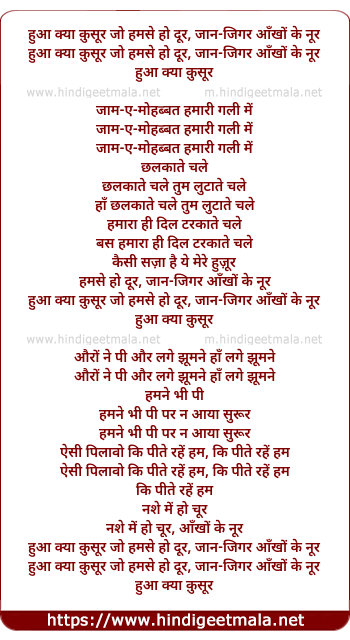 हुआ क्या क़ुसूर जो हमसे हो दूर, जान-जिगर आँखों के नूर
हुआ क्या क़ुसूर जो हमसे हो दूर, जान-जिगर आँखों के नूर
हुआ क्या क़ुसूर
www.hindigeetmala.net m.hindigeetmala.net
जाम-ए-मोहब्बत हमारी गली में
जाम-ए-मोहब्बत हमारी गली में
जाम-ए-मोहब्बत हमारी गली में
छलकाते चले
छलकाते चले तुम लुटाते चले
हाँ छलकाते चले तुम लुटाते चले
हमारा ही दिल टरकाते चले
बस हमारा ही दिल टरकाते चले
कैसी सज़ा है ये मेरे हुज़ूर
हमसे हो दूर, जान-जिगर आँखों के नूर
हुआ क्या क़ुसूर जो हमसे हो दूर, जान-जिगर आँखों के नूर
हुआ क्या क़ुसूर
www.hindigeetmala.net m.hindigeetmala.net
औरों ने पी और लगे झूमने हाँ लगे झूमने
औरों ने पी और लगे झूमने हाँ लगे झूमने
हमने भी पी
हमने भी पी पर न आया सुरूर
हमने भी पी पर न आया सुरूर
ऐसी पिलावो कि पीते रहें हम, कि पीते रहें हम
ऐसी पिलावो कि पीते रहें हम, कि पीते रहें हम
कि पीते रहें हम
नशे में हो चूर
नशे में हो चूर, आँखों के नूर
हुआ क्या क़ुसूर जो हमसे हो दूर, जान-जिगर आँखों के नूर
हुआ क्या क़ुसूर जो हमसे हो दूर, जान-जिगर आँखों के नूर
हुआ क्या क़ुसूर
https://www.hindigeetmala.net